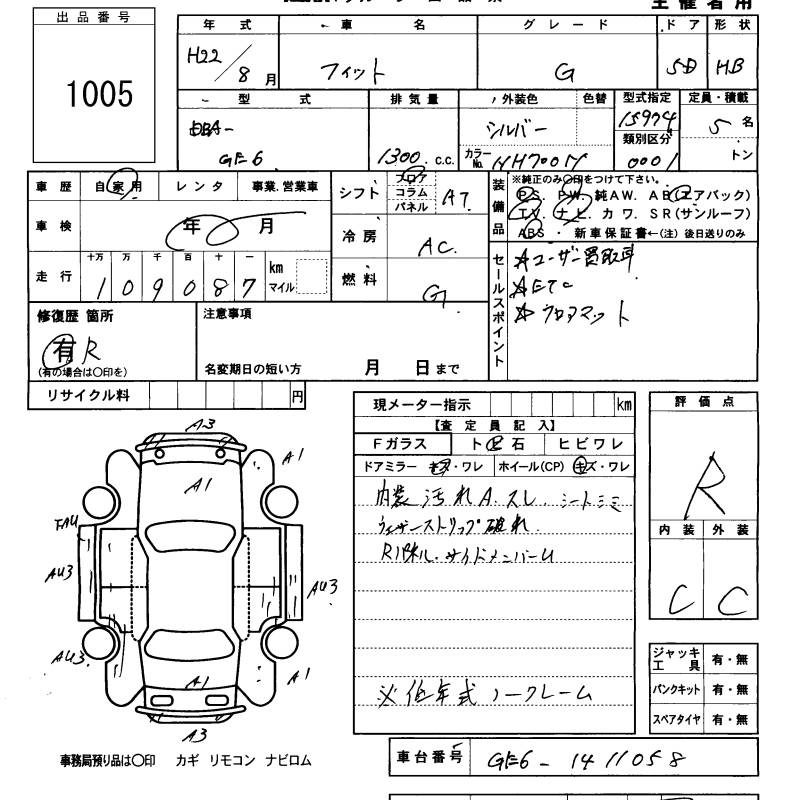 出品番号
1005
主催者用
年式 車名 グレード ドア 形状
H22/8月 フィット G 5D HB
型式 排気量 外装色 色替 型式指定 定員・積載
DBA-
GE6 1300 c.c. シルバー 15974 5名
カラーNo. NH700M 類別区分 0001 トン
車歴 自家用 レンタ 事業.営業車
車検 年 月
走行 十万 万 千 百 十 一
1 0 9 0 8 7 km マイル
シフト フロア コラム パネル AT
冷房 AC.
燃料 G
装備品
※純正のみ○印をつけて下さい。
P.S. P.W. 純AW. AB(エアバック)
T.V. ナビ. カワ. SR(サンルーフ)
ABS ・ 新車保証書←(注) 後日送りのみ
セールスポイント
☆ユーザー買取車
☆ETC
☆フロアマット
修復歴 箇所
有 R
(有の場合は○印を)
注意事項
名変期日の短い方 月 日まで
リサイクル料 円
現メーター指示 km
【査定員記入】
Fガラス ト ビ 石 ヒビワレ
ドアミラー キズ・ワレ ホイール(CP) キズ・ワレ
内装 汚れ A. スレ. シートミミ
ウェザーストリップ 破れ.
R
サイドメンバーU
※低年式 ノークレーム
評価点
R
内装 外装
C C
ジャッキ工具 有・無
パンクキット 有・無
スペアタイヤ 有・無
A3
A1
A1
AU3
AU3
AU3
A1
A1
A3
事務局預り品は○印 カギ リモコン ナビロム
車台番号 GE6-1411058